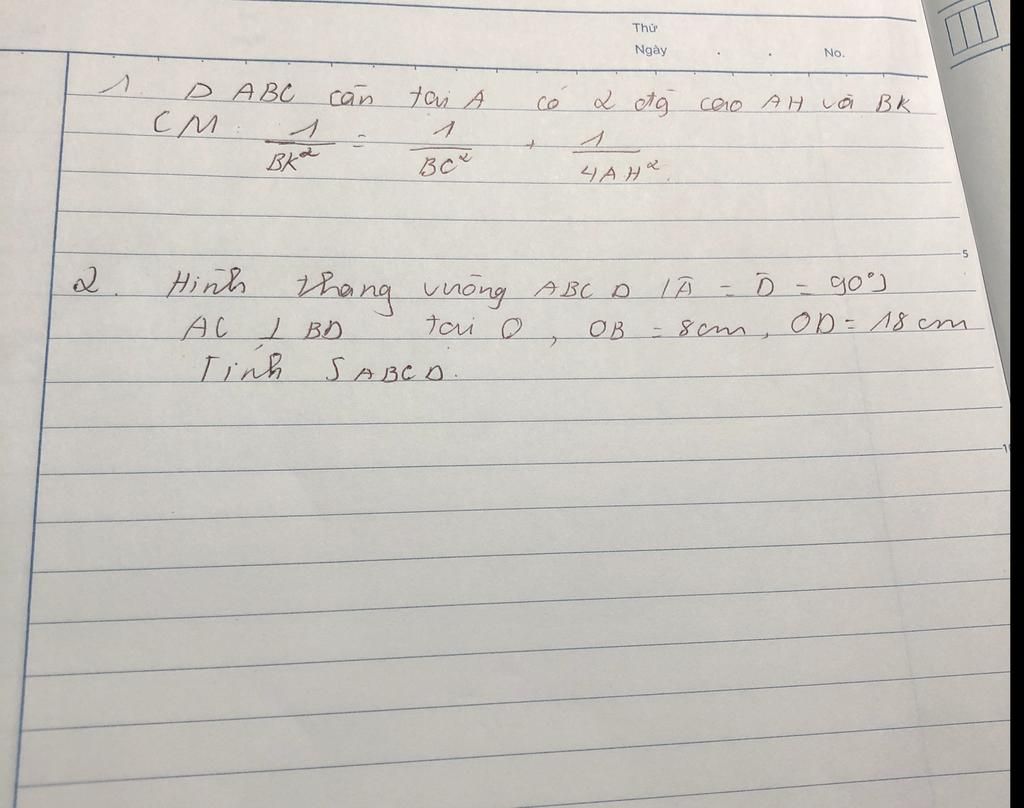 Thứ
Ngày . . No.
1. D ABC cân tại A có 2 đg cao AH và BK
CM: 1/BK² = 1/BC² + 1/4AH².
5
2. Hình thang vuông ABCD (Â = D̂ = 90°)
AC ⊥ BD tại O, OB = 8cm, OD = 18cm
Tính SABCD.
10